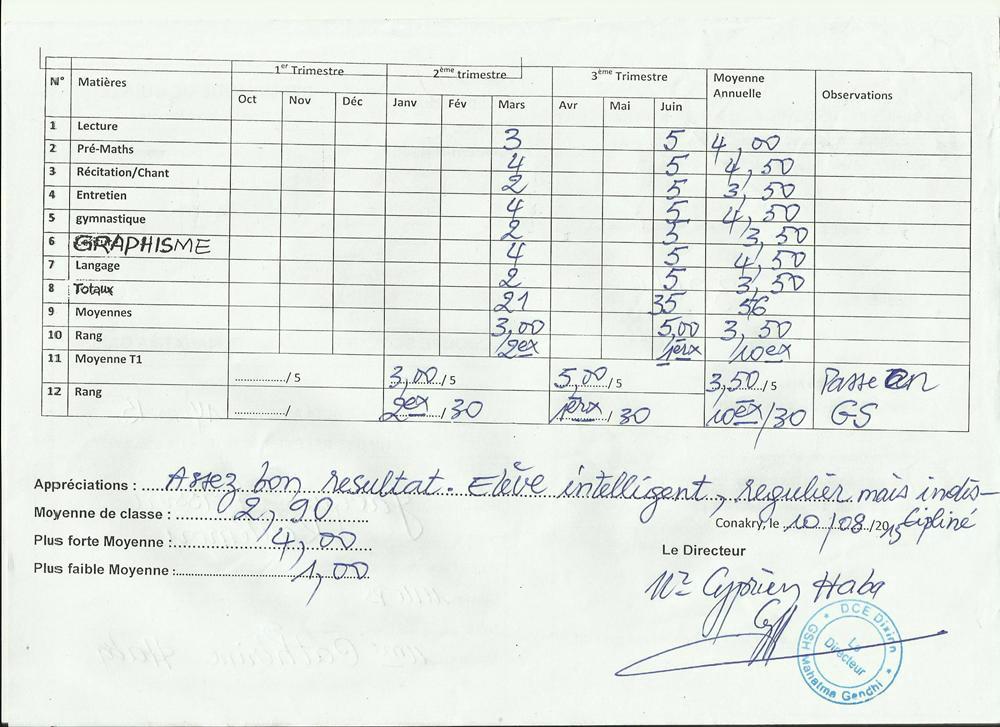 1er Trimestre 2ème trimestre 3ème Trimestre
N° Matières Oct Nov Déc Janv Fév Mars Avr Mai Juin Moyenne Annuelle Observations
1 Lecture 3 5 4,00
2 Pré-Maths 4 5 4,50
3 Récitation/Chant 2 5 3,50
4 Entretien 4 5 4,50
5 gymnastique 2 5 3,50
6 GRAPHISME 4 5 4,50
7 Langage 2 5 3,50
8 Totaux 21 35 56
9 Moyennes 3,00 5,00 3,50
10 Rang 2ex 1erx 10ex
11 Moyenne T1 ............../ 5 3,00/5 5,00/5 3,50/5 Passe en
12 Rang ............../ 2ex/30 1erx/30 10ex/30 GS
Appréciations : Assez bon resultat. Elève intelligent, regulier mais indis-
cipliné
Moyenne de classe : 2,90
Conakry, le 10/08/2013
Plus forte Moyenne : 4,00
Le Directeur
Plus faible Moyenne : 1,00
Mr Cyprien Haba
DCE Dixinn
GSH Mahatma Gandhi
Le Directeur